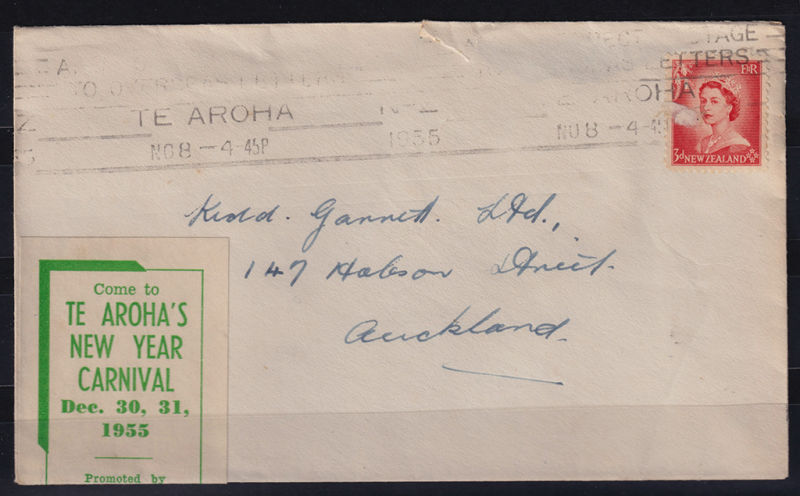 TE AROHA N-Z
NO 8 - 4-45P 1955
TE AROHA
NO 8 - 4-45
LETTERS
E R
3d NEW ZEALAND
Kidd. Garrett. Ltd.,
147 Hobson Street.
Auckland.
Come to
TE AROHA'S
NEW YEAR
CARNIVAL
Dec. 30, 31,
1955
Promoted by